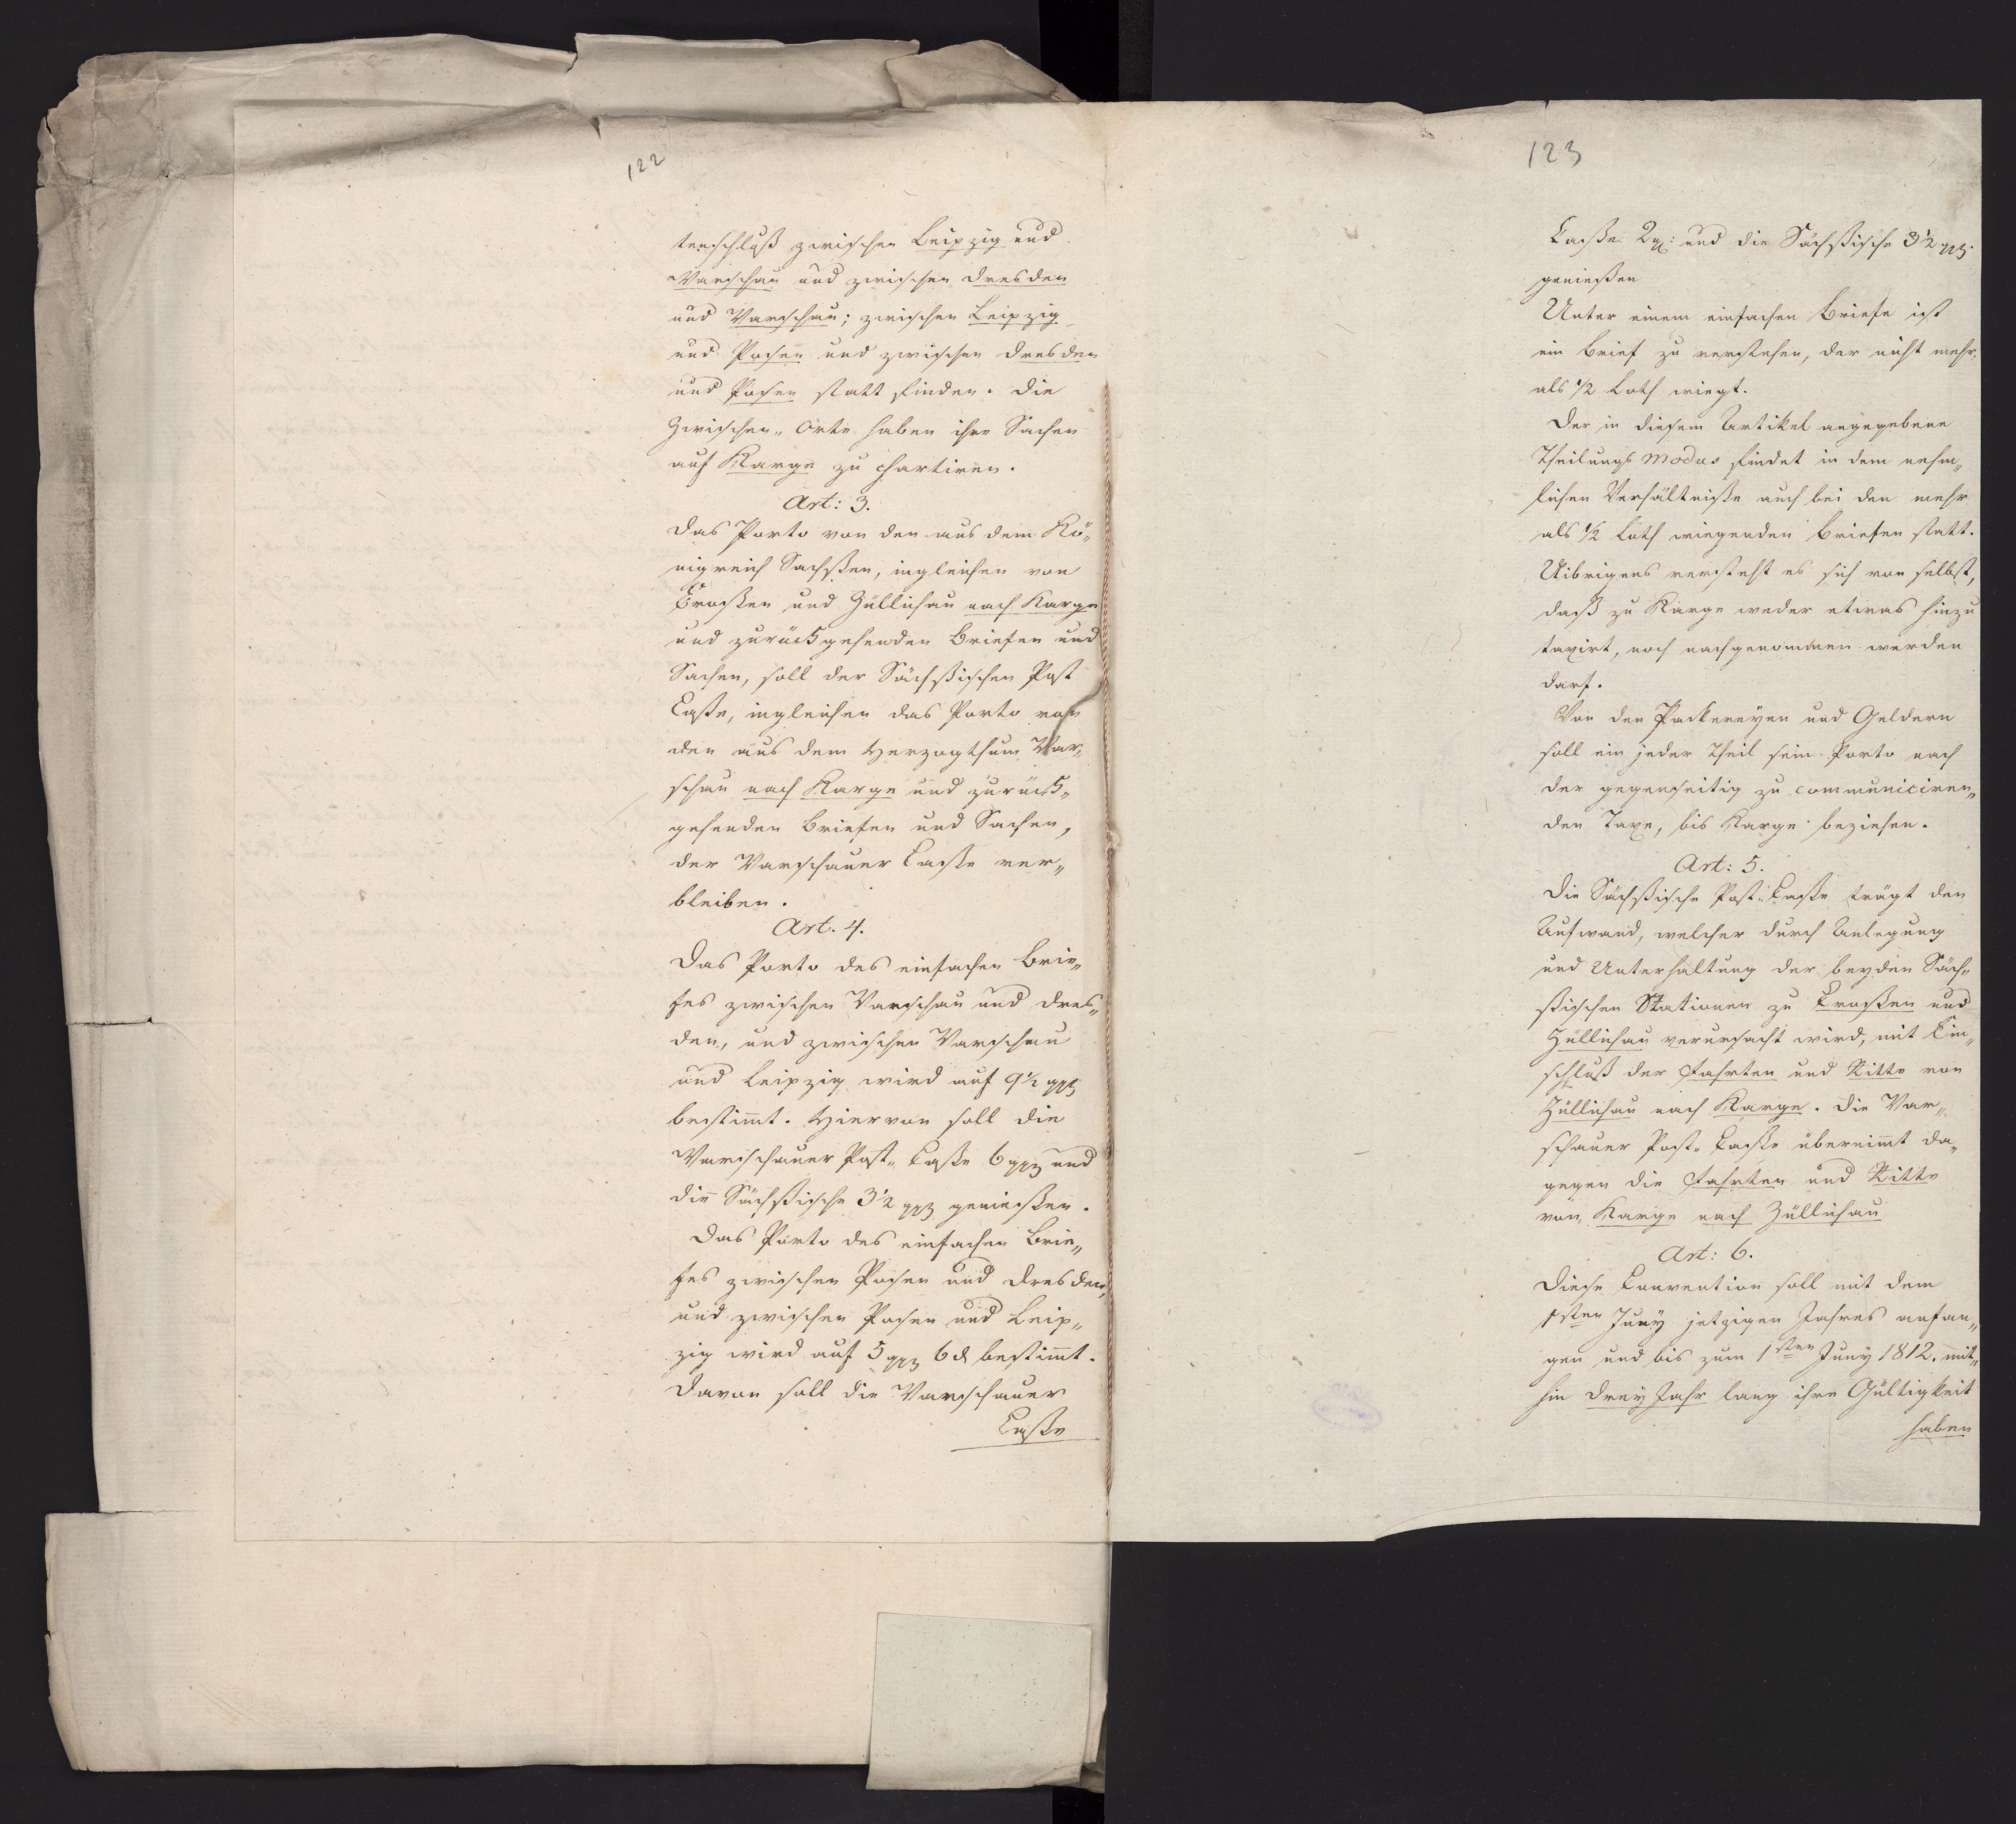 122
tenschluß zwischen Leipzig und
Warschau und zwischen Dresden
und Warschau; zwischen Leipzig
und Posen und zwischen Dresden
und Posen statt finden. Die
Zwischen„Orte haben ihre Sachen
auf Karge zu chartiren.
Art: 3.
Das Porto von den aus dem Kö„
nigreich Sachßen, ingleichen von
Croßen und Züllichau nach Karge
und zurückgehenden Briefen und
Sachen, soll der Sächßischen Post
Caße, ingleichen das Porto von
den aus dem Herzogthum War„
schau nach Karge und zurück„
gehenden Briefen und Sachen,
der Warschauer Caße ver„
bleiben.
Art. 4.
Das Porto des einfachen Brie„
fes zwischen Warschau und Dres„
den, und zwischen Warschau
und Leipzig wird auf 9½ ggl
bestimt. Hiervon soll die
Warschauer Post„Caße 6 ggl und
die Sächßische 3½ ggl genießen.
Das Porto des einfachen Brie„
fes zwischen Posen und Dresden,
und zwischen Posen und Leip„
zig wird auf 5 ggl 6 d bestimt.
Davon soll die Warschauer
Caße
123
Caße 2 g: und die Sächßische 3½ ggl.
genießen
Unter einem einfachen Briefe ist
ein Brief zu verstehen, der nicht mehr
als ½ Loth wiegt.
Der in diesem Artikel angegebene
Theilungs Modus findet in dem nehm„
lichen Verhältniße auch bei den mehr
als ½ Loth wiegenden Briefen statt.
Uibrigens versteht es sich von selbst,
daß zu Karge weder etwas hinzu
taxirt, noch nachgenommen werden
darf.
Von den Packereyen und Geldern
soll ein jeder Theil sein Porto nach
der gegenseitig zu communiciren„
den Taxe, bis Karge beziehen.
Art: 5.
Die Sächßische Post„Caße trägt den
Aufwand, welcher durch Anlegung
und Unterhaltung der beyden Säch„
ßischen Stationen zu Croßen und
Züllichau verursacht wird, mit Ein„
schluß der Fahrten und Ritte von
Züllichau nach Karge. Die War„
schauer Post„Caße übernimt da„
gegen die Fahrten und Ritte
von Karge nach Züllichau
Art: 6.
Diese Convention soll mit dem
1sten Juny jetzigen Jahres anfan„
gen und bis zum 1sten Juny 1812. mit„
hin drey Jahr lang ihre Gültigkeit
haben